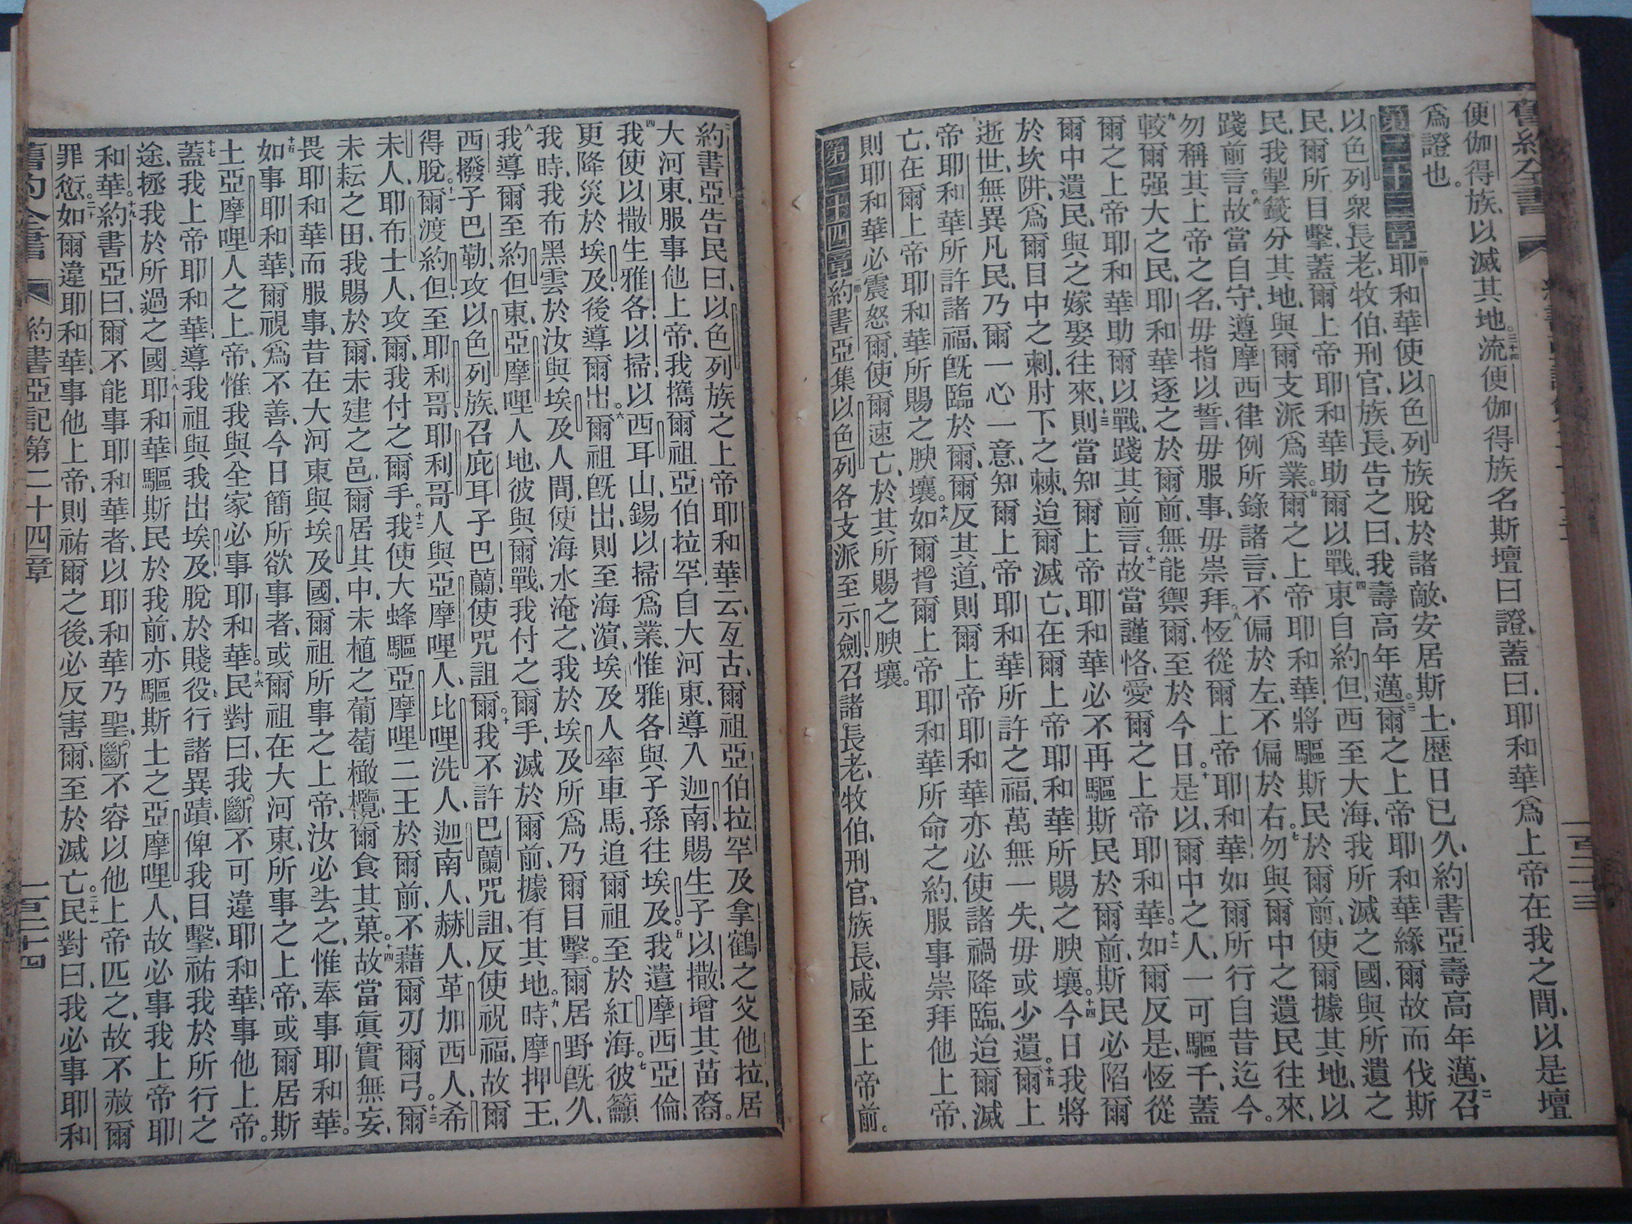 舊約全書
便伽得族、以滅其地。三十四流便伽得族名斯壇曰證、蓋曰、耶和華爲上帝在我之間、以是壇
爲證也。
第二十三章耶和華使以色列族脫於諸敵、安居斯土、歷日已久、約書亞壽高年邁、二召
以色列衆長老、牧伯、刑官、族長、告之曰、我壽高年邁。三爾之上帝耶和華緣爾故而伐斯
民、爾所目擊、蓋爾上帝耶和華助爾以戰。四東自約但、西至大海、我所滅之國、與所遺之
民、我掣籤分其地、與爾支派爲業。五爾之上帝耶和華、將驅斯民於爾前、使爾據其地、以
踐前言。六故當自守、遵摩西律例所錄諸言、不偏於左、不偏於右。七勿與爾中之遺民往來、
勿稱其上帝之名、毋指以誓、毋服事、毋崇拜。八恆從爾上帝耶和華、如爾所行自昔迄今。
九較爾强大之民、耶和華逐之於爾前、無能禦爾、至於今日。十是以爾中之人、一可驅千、蓋
爾之上帝耶和華助爾以戰、踐其前言。十一故當謹恪、愛爾之上帝耶和華。十二如爾反是、恆從
爾中遺民、與之嫁娶往來、十三則當知爾上帝耶和華、必不再驅斯民於爾前、斯民必陷爾
於坎阱、爲爾目中之刺、肘下之棘、迨爾滅亡、在爾上帝耶和華所賜之腴壤。十四今日我將
逝世、無異凡民、乃爾一心一意、知爾上帝耶和華所許之福、萬無一失、毋或少遺。十五爾上
帝耶和華所許諸福、旣臨於爾、爾反其道、則爾上帝耶和華、亦必使諸禍降臨、迨爾滅
亡、在爾上帝耶和華所賜之腴壤。十六如爾背爾上帝耶和華所命之約、服事崇拜他上帝、
則耶和華必震怒爾、使爾速亡、於其所賜之腴壤。
第二十四章約書亞集以色列各支派至示劍、召諸長老、牧伯、刑官、族長、咸至上帝前。
約書亞告民曰、以色列族之上帝耶和華云、亙古、爾祖亞伯拉罕及拿鶴之父他拉、居
大河東、服事他上帝、我攜爾祖亞伯拉罕自大河東、導入迦南、賜生子以撒、增其苗裔。
四我使以撒生雅各以掃、以西耳山錫以掃爲業、惟雅各與子孫往埃及。五我遣摩西亞倫
更降災於埃及、後導爾出。六爾祖旣出、則至海濱、埃及人率車馬、追爾祖至於紅海。七彼籲
我時、我布黑雲於汝與埃及人間、使海水淹之、我於埃及所爲、乃爾目擊。爾居野旣久、
八我導爾至約但東、亞摩哩人地、彼與爾戰、我付之爾手、滅於爾前、據有其地。九時、摩押王、
西撥子巴勒、攻以色列族、召庇耳子巴蘭、使咒詛爾、十我不許巴蘭咒詛、反使祝福、故爾
得脫。十一爾渡約但、至耶利哥、耶利哥人、與亞摩哩人、比哩洗人、迦南人、赫人、革加西人、希
未人、耶布士人攻爾、我付之爾手。十二我使大蜂驅亞摩哩二王於爾前、不藉爾刃爾弓。十三爾
未耘之田、我賜於爾、未建之邑、爾居其中、未植之葡萄橄欖、爾食其菓。十四故當眞實無妄、
畏耶和華而服事、昔在大河東、與埃及國、爾祖所事之上帝、汝必去之、惟奉事耶和華。
十五如事耶和華、爾視爲不善、今日簡所欲事者、或爾祖在大河東、所事之上帝、或爾居斯
土亞摩哩人之上帝、惟我與全家必事耶和華。十六民對曰、我斷不可違耶和華、事他上帝。
十七蓋我上帝耶和華導我祖與我出埃及、脫於賤役、行諸異蹟、俾我目擊、祐我於所行之
途、拯我於所過之國、十八耶和華驅斯民於我前、亦驅斯土之亞摩哩人、故必事我上帝耶
和華。十九約書亞曰、爾不能事耶和華者、以耶和華乃聖、斷不容以他上帝匹之、故不赦爾
罪愆。二十如爾違耶和華、事他上帝、則祐爾之後、必反害爾、至於滅亡。二十一民對曰、我必事耶和
舊約全書 約書亞記第二十四章 一百三十四